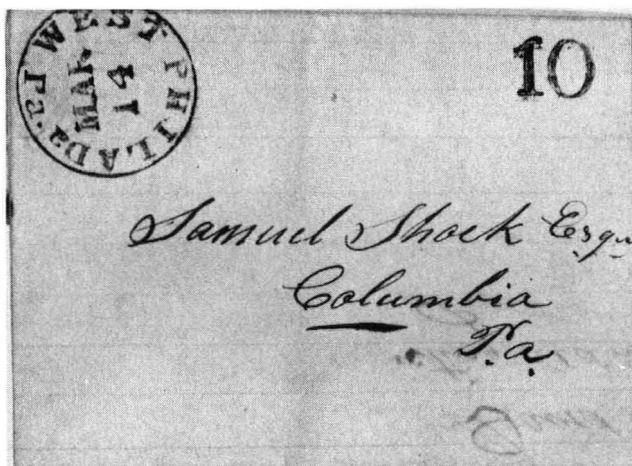 WEST PHILADa. Pa
MAR.
14
10
Samuel Shock Esqr
Columbia
Pa.